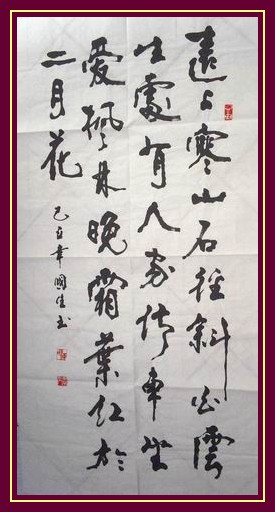 遠上寒山石徑斜白雲
生處有人家停車坐
愛楓林晚霜葉紅於
二月花
己丑國生书